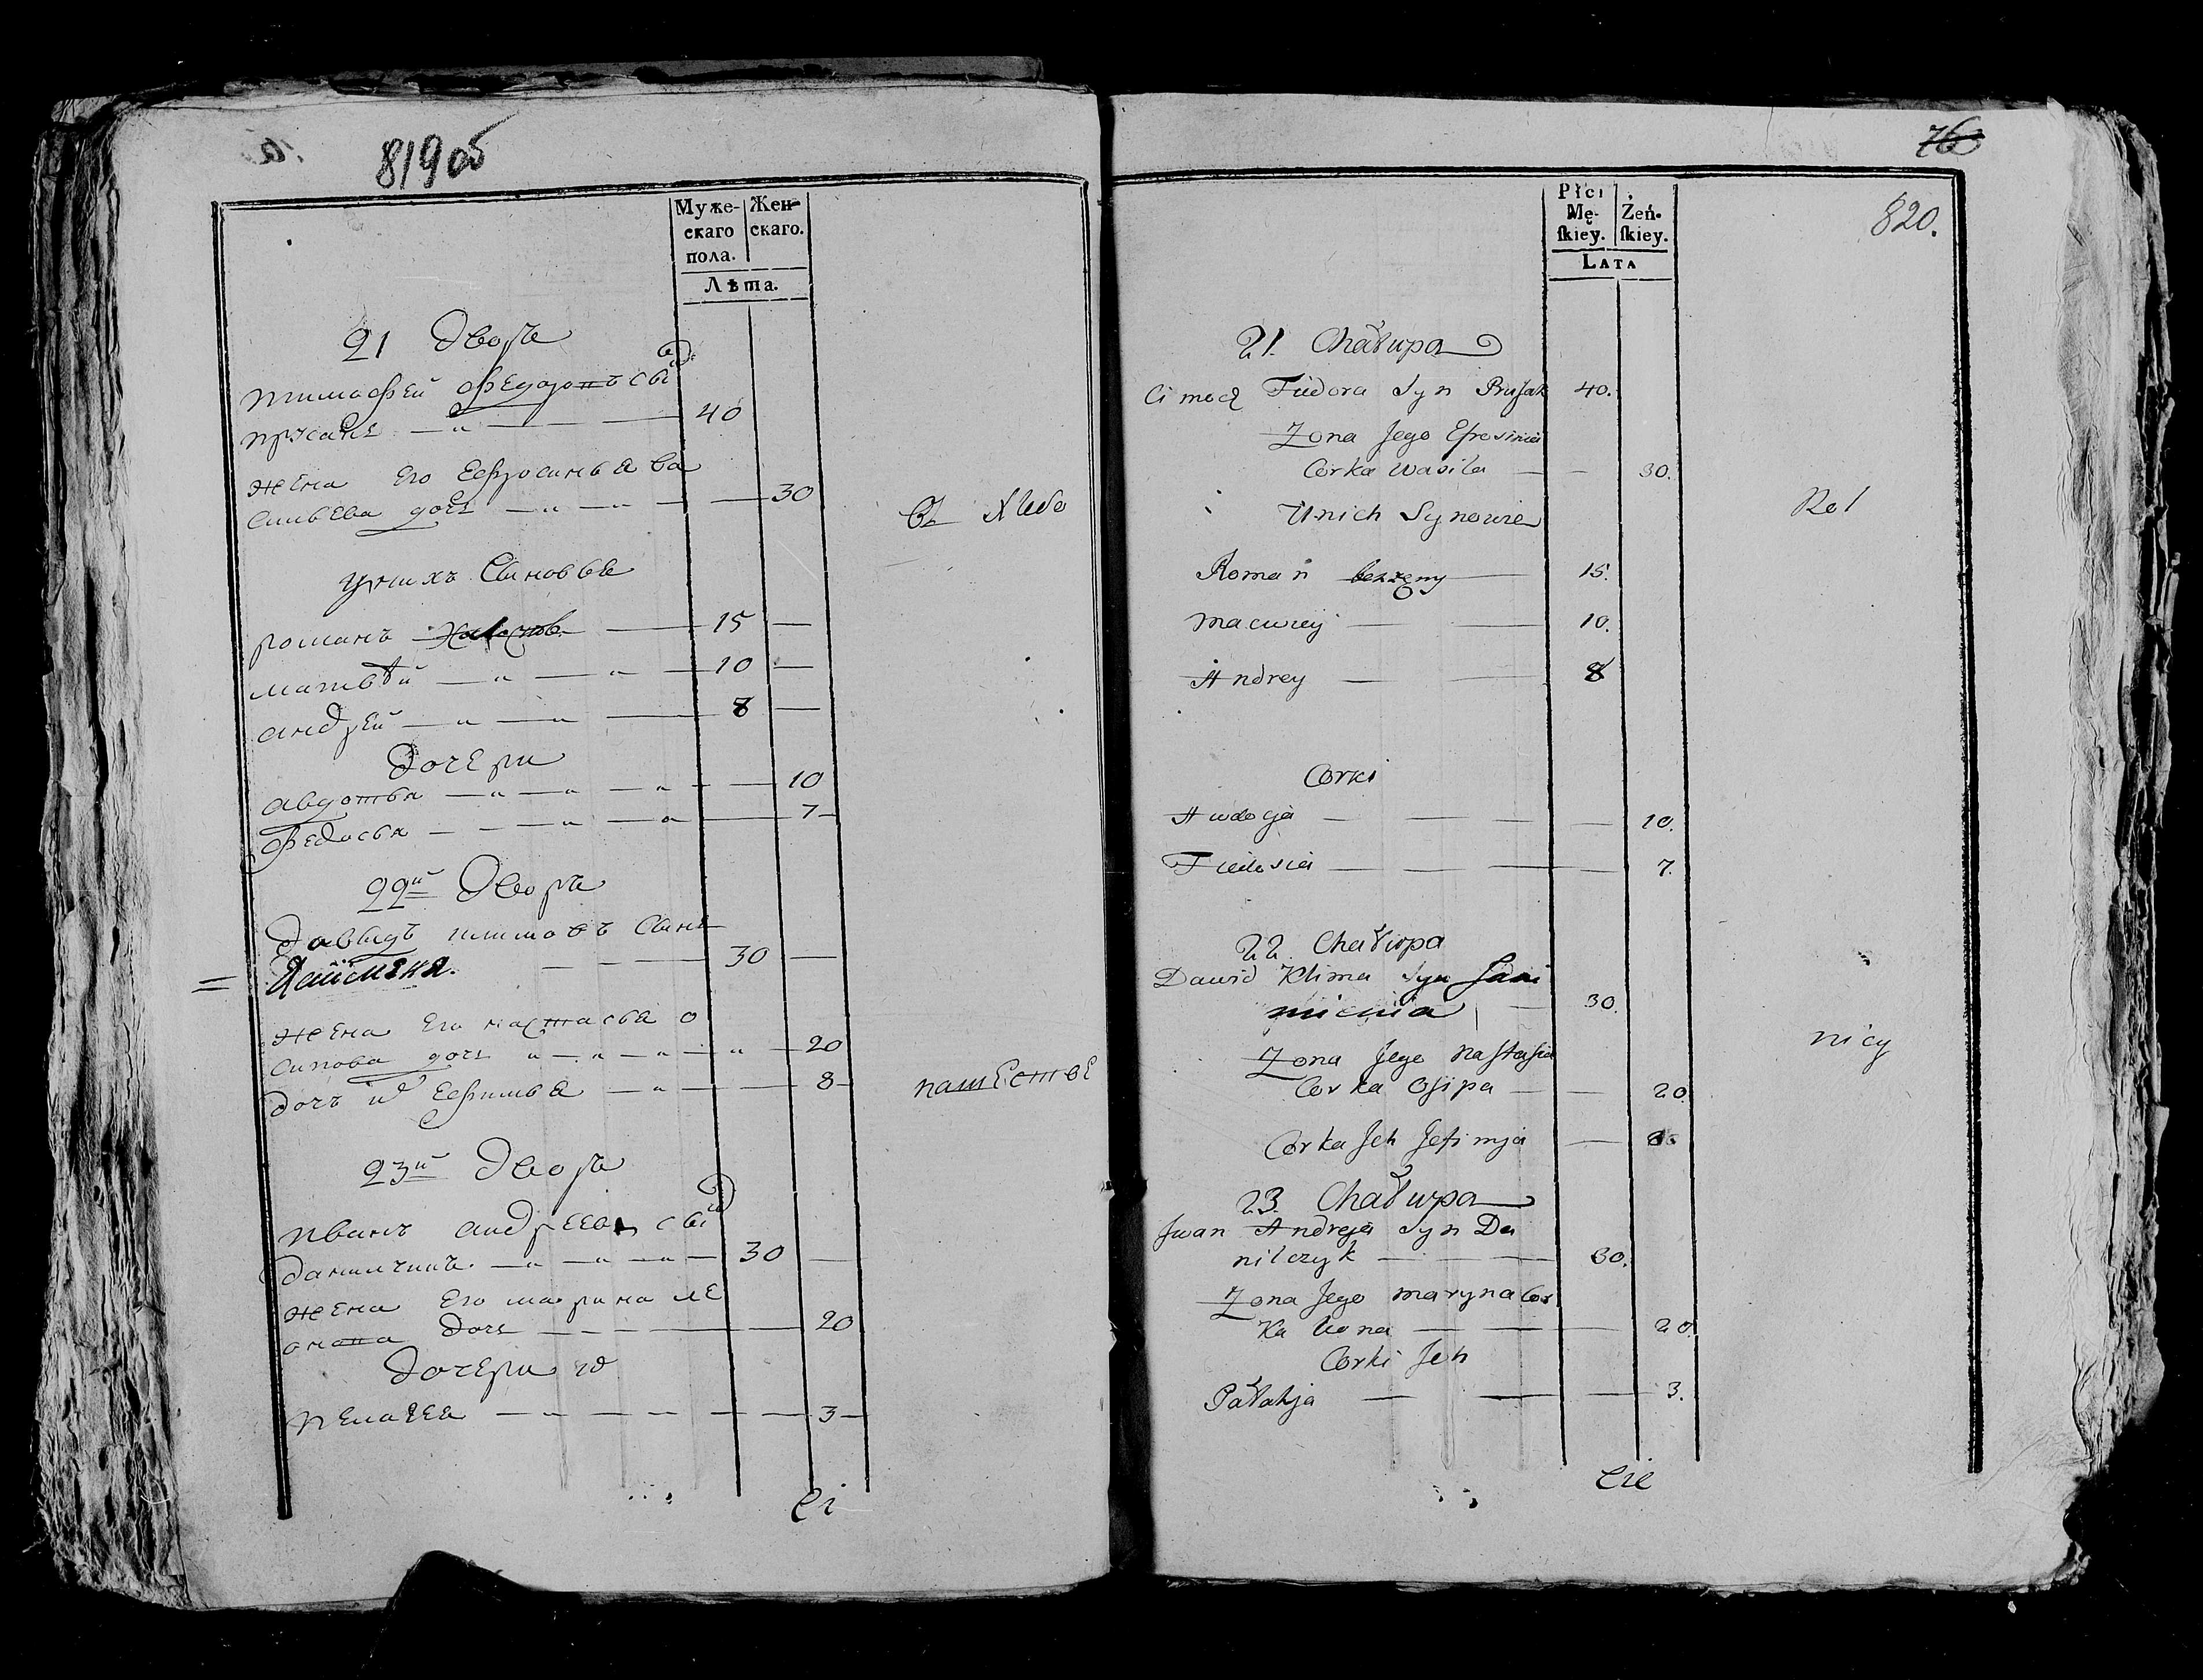 819об
Муже-
скаго
пола.
Жен-
скаго.
Лѣта.
21 Дворъ
тимофей федоровъ сынъ
прусакъ 40
жена его ефросинья ва
сильева дочь 30
въ хлебо
у них Сыновья
романъ холостъ 15
матвѣй 10
андрей 8
Дочери
авдотья 10
федосья 7
22й Дворъ
Давыдъ климовъ Сынъ
30
жена его настасья о
сипова дочь 20
дочь их ефимья 8
пашестве
23й Дворъ
иванъ андреевъ сынъ
данилчикъ 30
жена его марина ле
онова дочь 20
дочери их
пелагея 3
76
820.
Płci
Mę-
ſkiey.
Żeń-
ſkiey.
LATA
21. Chałupa
Cimoch Fiedora Syn Prusak 40.
Zona Jego Efrosinia
Corka Wasila 30.
Rol
U nich Synowie
Roman bezżeny 15.
Macwiey 10.
Andrey 8
Corki
Awdocja 10.
Fiedosia 7.
22. Chałupa
Dawid Klima Syn
30.
Zona Jego Nastasia
Corka Osipa 20.
nicy
Corka Jch Jefimja 8.
23. Chałupa
Jwan Andreja Syn Da
nilczyk 30.
Zona Jego Maryna Cor
ka Leona 20.
Corki Jch
Pałahja 3.